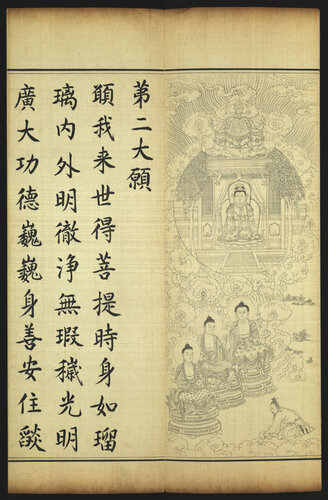 第二大願
願我来世得菩提時身如瑠
璃内外明徹浄無瑕穢光明
廣大功德巍巍身善安住燄